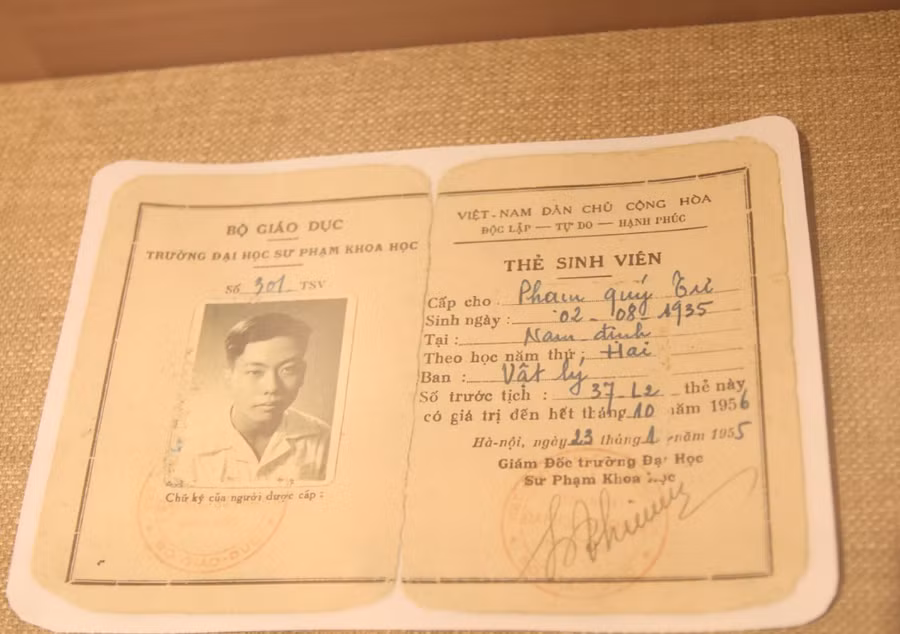 BỘ GIÁO DỤC
TRƯỜNG ĐẠI HỌC SƯ PHẠM KHOA HỌC
Số 301 TSV
Chữ ký của người được cấp :
VIỆT-NAM DÂN CHỦ CỘNG HÒA
ĐỘC LẬP — TỰ DO — HẠNH PHÚC
THẺ SINH VIÊN
Cấp cho Phạm quý Tư
Sinh ngày : 02 - 08 - 1935
Tại : Nam định
Theo học năm thứ : Hai
Ban : Vật lý
Số trước tịch : 37 L2 thẻ này
có giá trị đến hết tháng 10 năm 1956
Hà-nội, ngày 23 tháng 1 năm 1955
Giám Đốc trường Đại Học
Sư Phạm Khoa Học